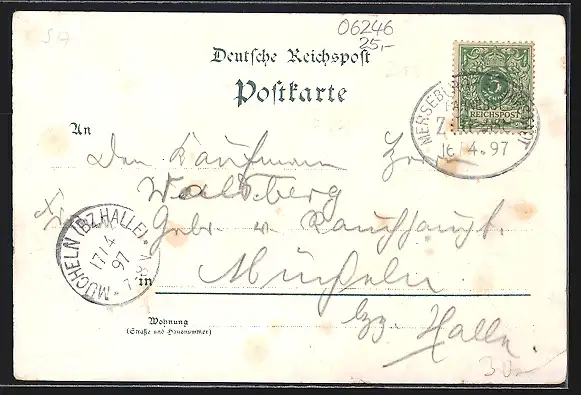 06246
25,-
Deutsche Reichspost
Postkarte
5
REICHSPOST
MERSEBURG
16/4.97
An
Den Kaufmann Herrn
Walsberg
Gebr. v Rauchhaupt
MÜCHELN (BZ.HALLE).
17/4
97
7-8V.
in Mücheln
Wohnung
(Straße und Hausnummer)
bz. Halle